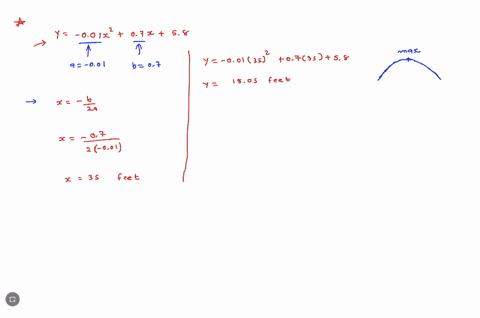 y = -0.01x² + 0.7x + 5.8
a = -0.01 b = 0.7
x = - b/2a
x = - 0.7/2(-0.01)
x = 35 feet
y = -0.01(35)² + 0.7(35) + 5.8
y = 18.05 feet
max